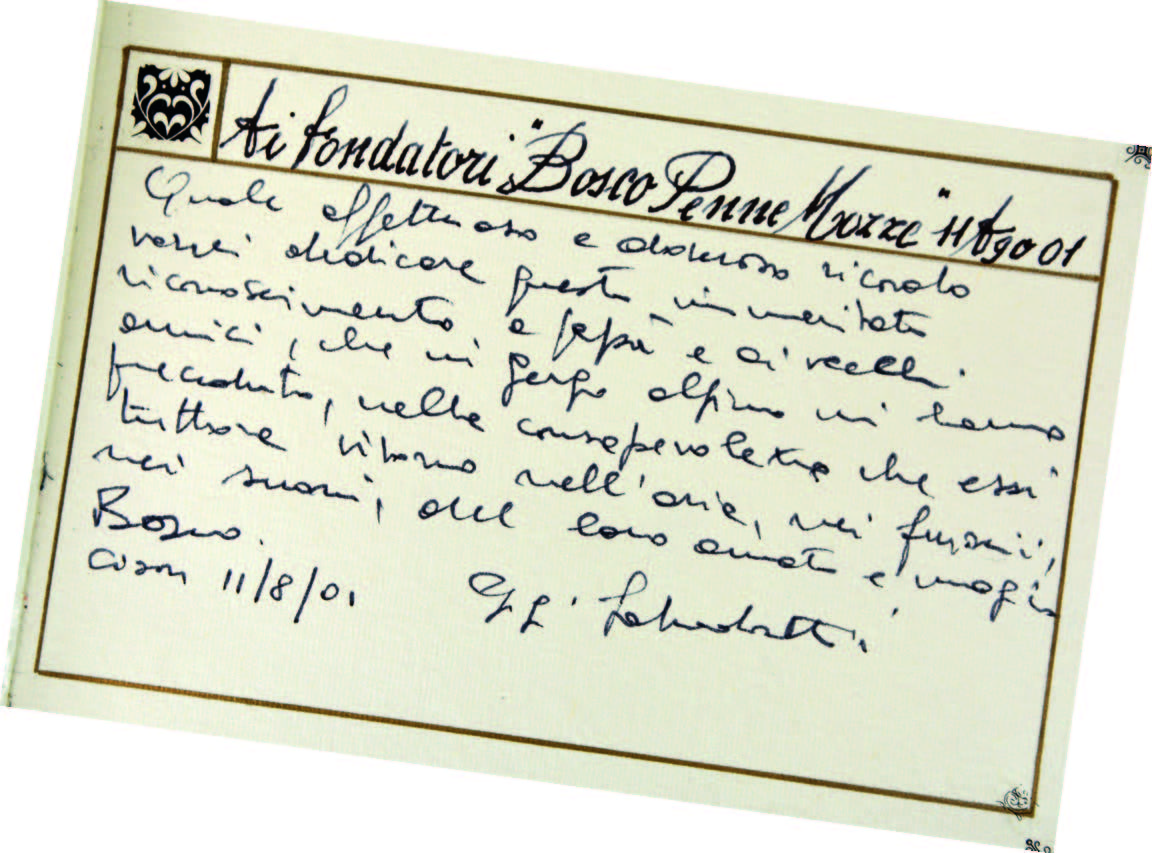 Ai fondatori "Bosco Penne Mozze" 11 Ago 01
Quale affettuoso e doveroso ricordo
vorrei dedicare questo immeritato
riconoscimento a papà e ai vecchi
amici, che in gergo alpino mi hanno
preceduto, nella consapevolezza che essi
tuttora vivono nell'aria, nei
nei suoni, del loro amato e magico
Bosco.
Cison 11/8/01